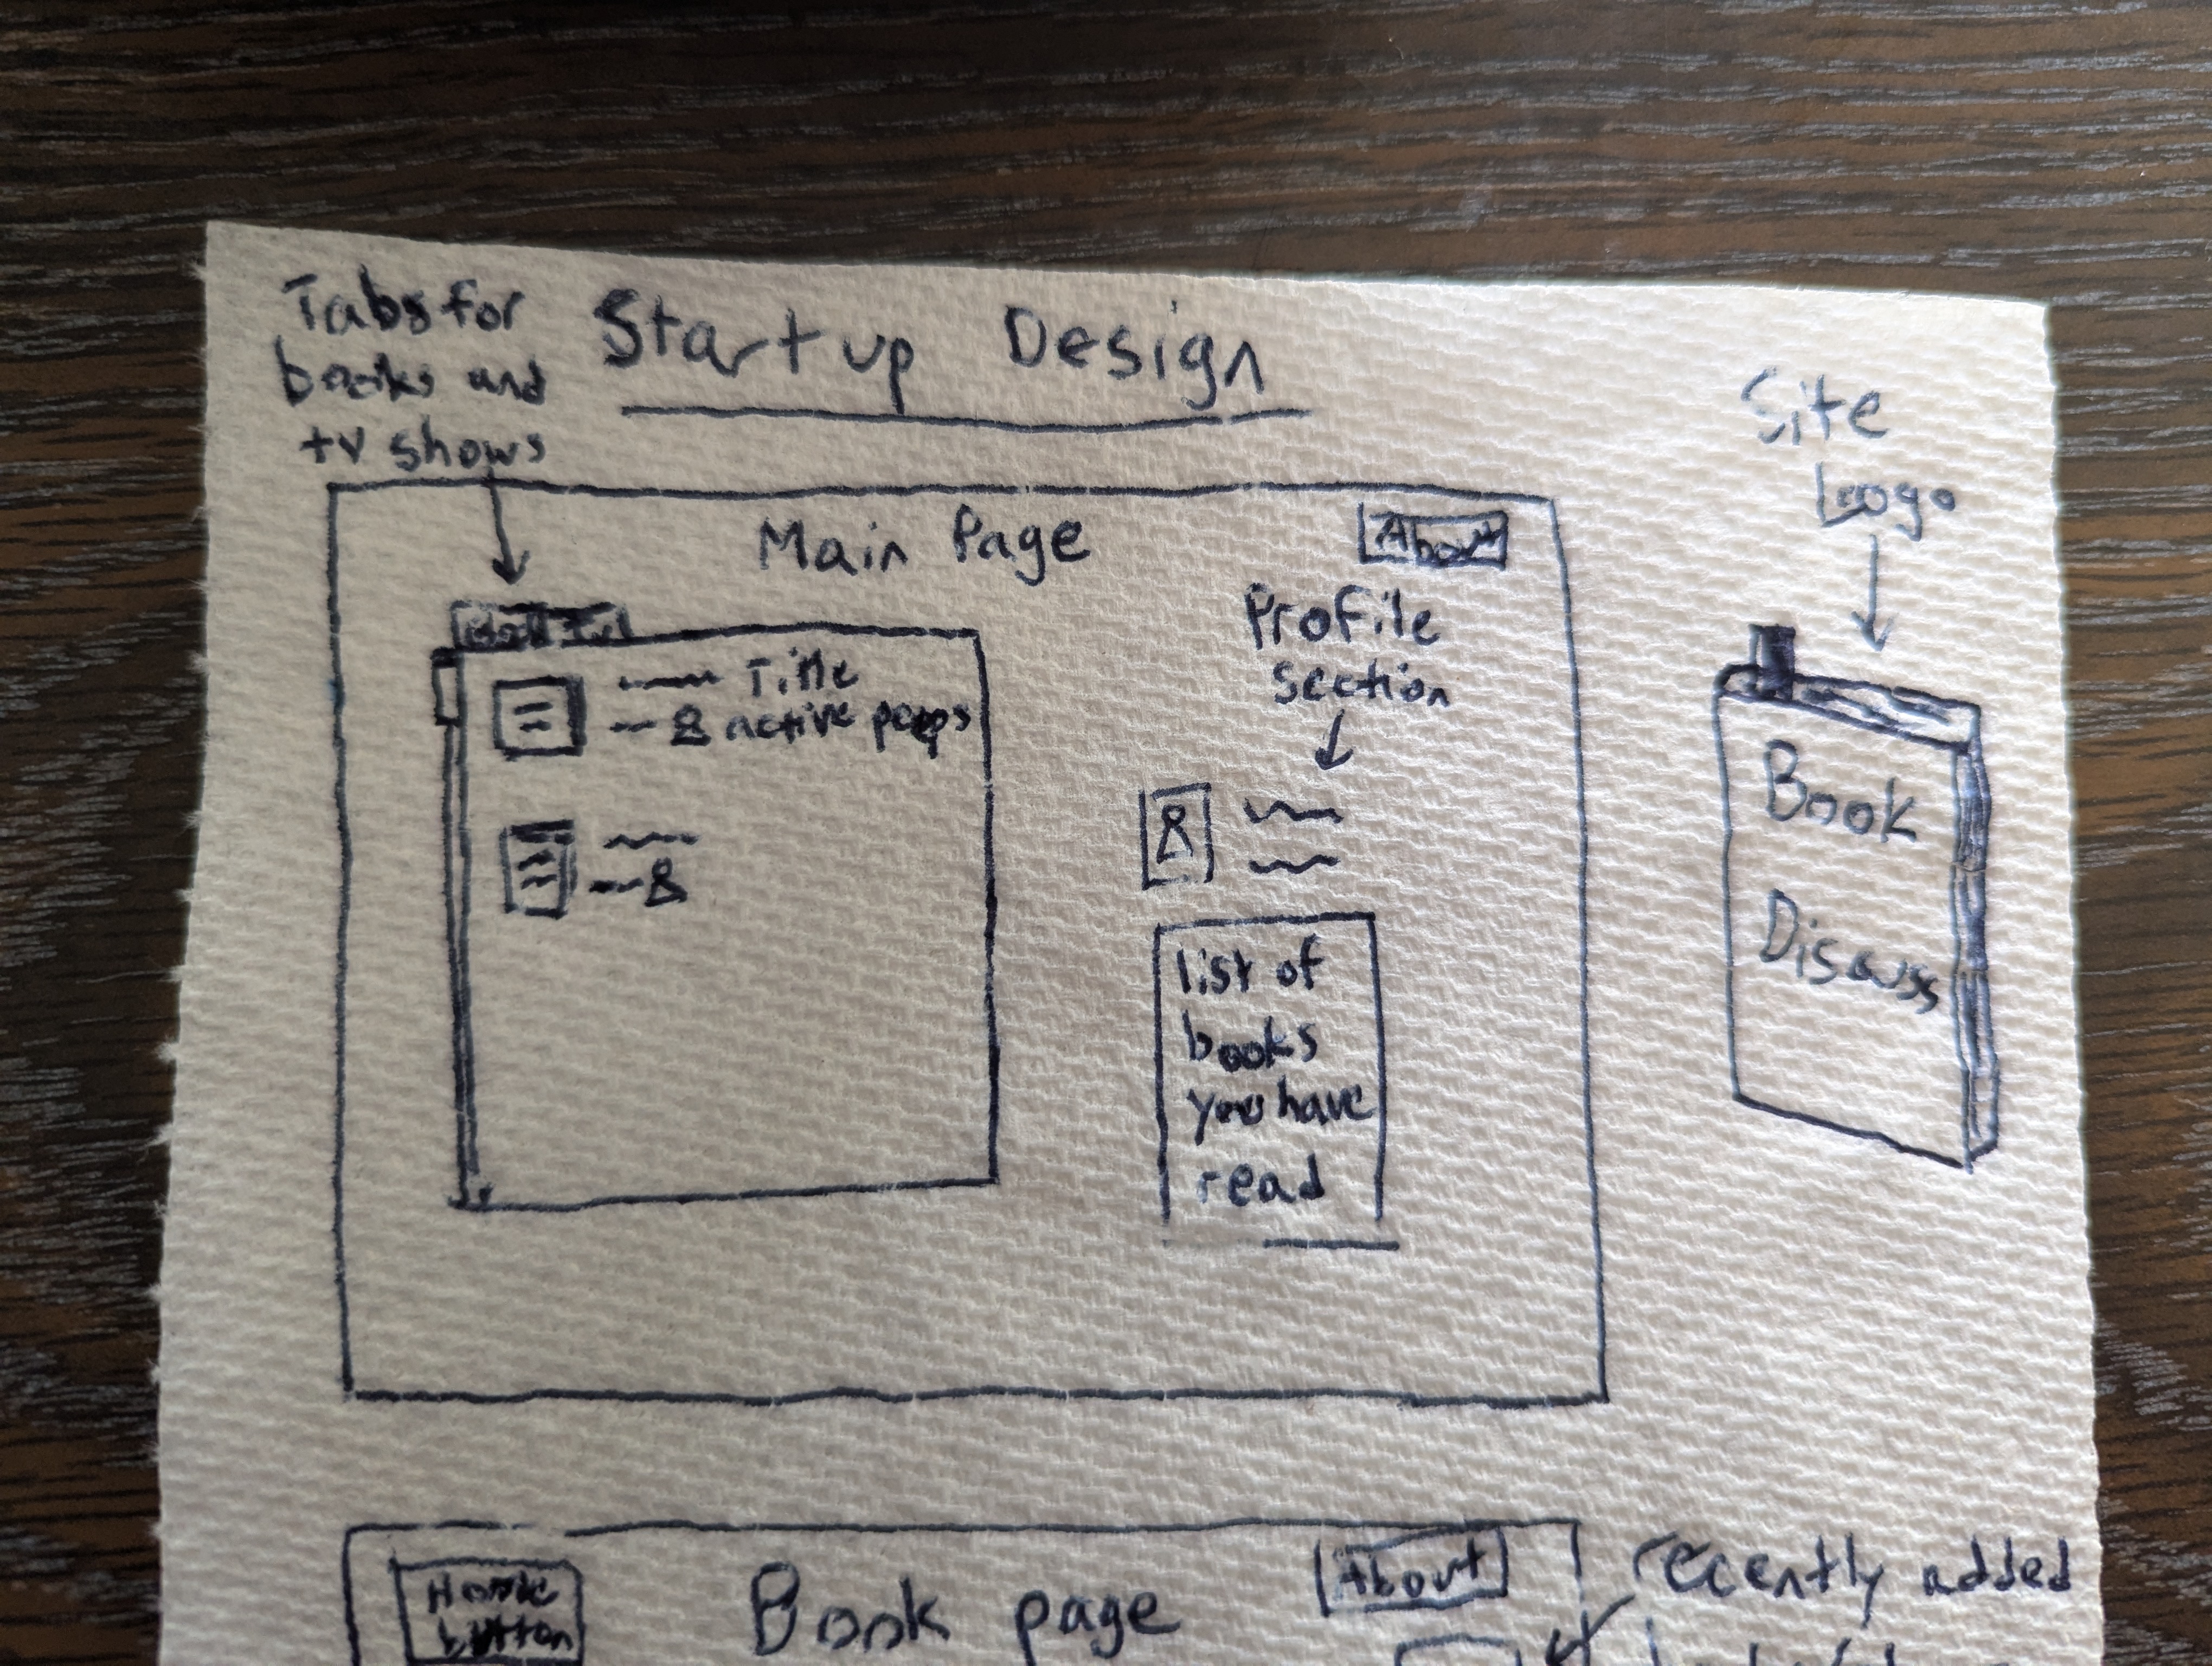 Tabs for
books and
tv shows
Startup Design
Site
Logo
Main Page
About
Profile
section
Title
active peeps
list of
books
you have
read
Book
Discuss
Home
button
Book page
About
recently added